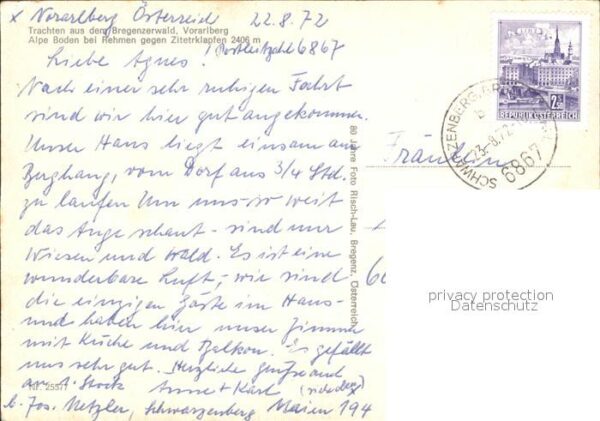 x Vorarlberg Österreich 22.8.72
Trachten aus dem Bregenzerwald, Vorarlberg
Alpe Boden bei Rehmen gegen Zitetrklapfen 2406 m
(Postleitzahl 6867
Liebe Agnes!
Nach einer sehr ruhigen Fahrt
sind wir hier gut angekommen.
Unser Haus liegt einsam am
Berghang, vom Dorf aus 3/4 Std.
zu laufen. Um uns - so weit
das Auge schaut - sind nur
Wiesen und Wald. Es ist eine
wunderbare Luft, - wir sind
die einzigen Gäste im Haus -
und haben hier unser Zimmer
mit Küche und Balkon. Es gefällt
uns sehr gut. Herzliche Grüße auch
Nr. 25571
an 1. Stock Anne + Karl
b. Jos. Metzler, Schwarzenberg Maien 194
80 Jahre Foto Risch-Lau, Bregenz, Österreich
2 S
REPUBLIK ÖSTERREICH
SCHWARZENBERG
23.-8.72
6867
Fräulein
privacy protection
Datenschutz